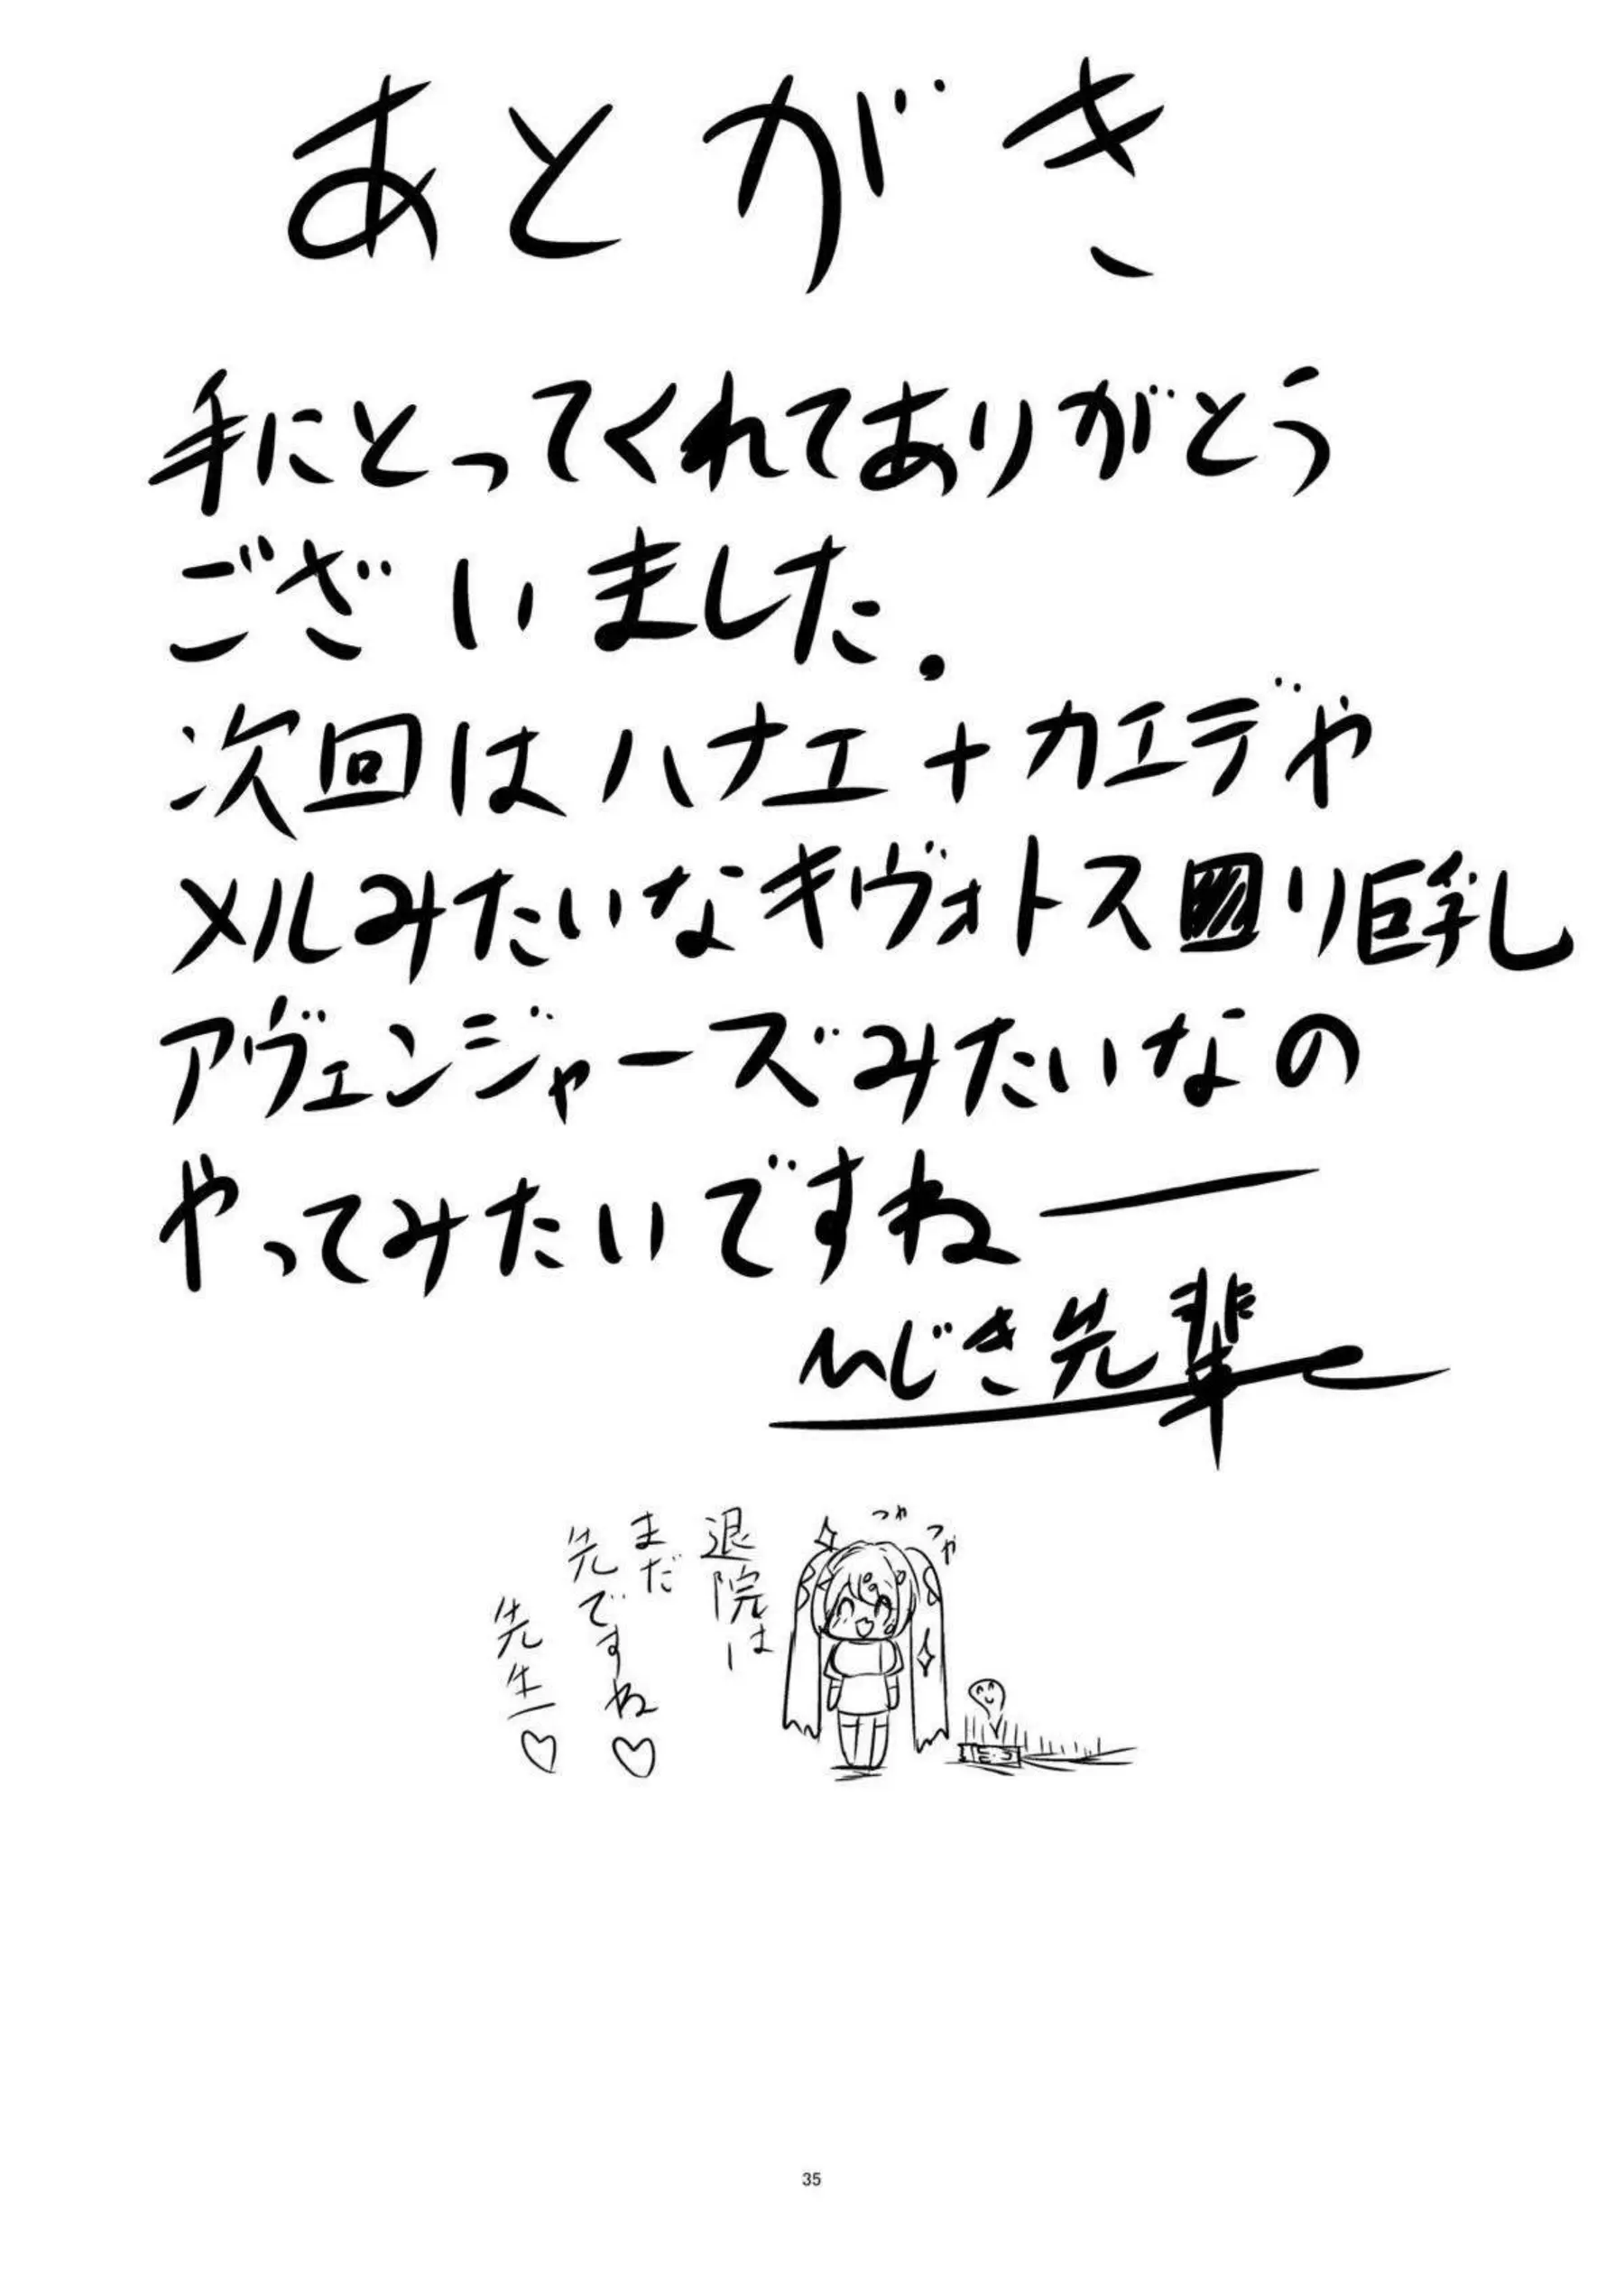 あとがき
手にとってくれてありがとう
ございました.
次回はハナエ+カエデや
メルみたいなキヴォトス囲り巨乳
アヴェンジャーズみたいなの
やってみたいですねー
ひじき先輩
つや
つや
退院は
まだ
先ですね♡
先生♡
35